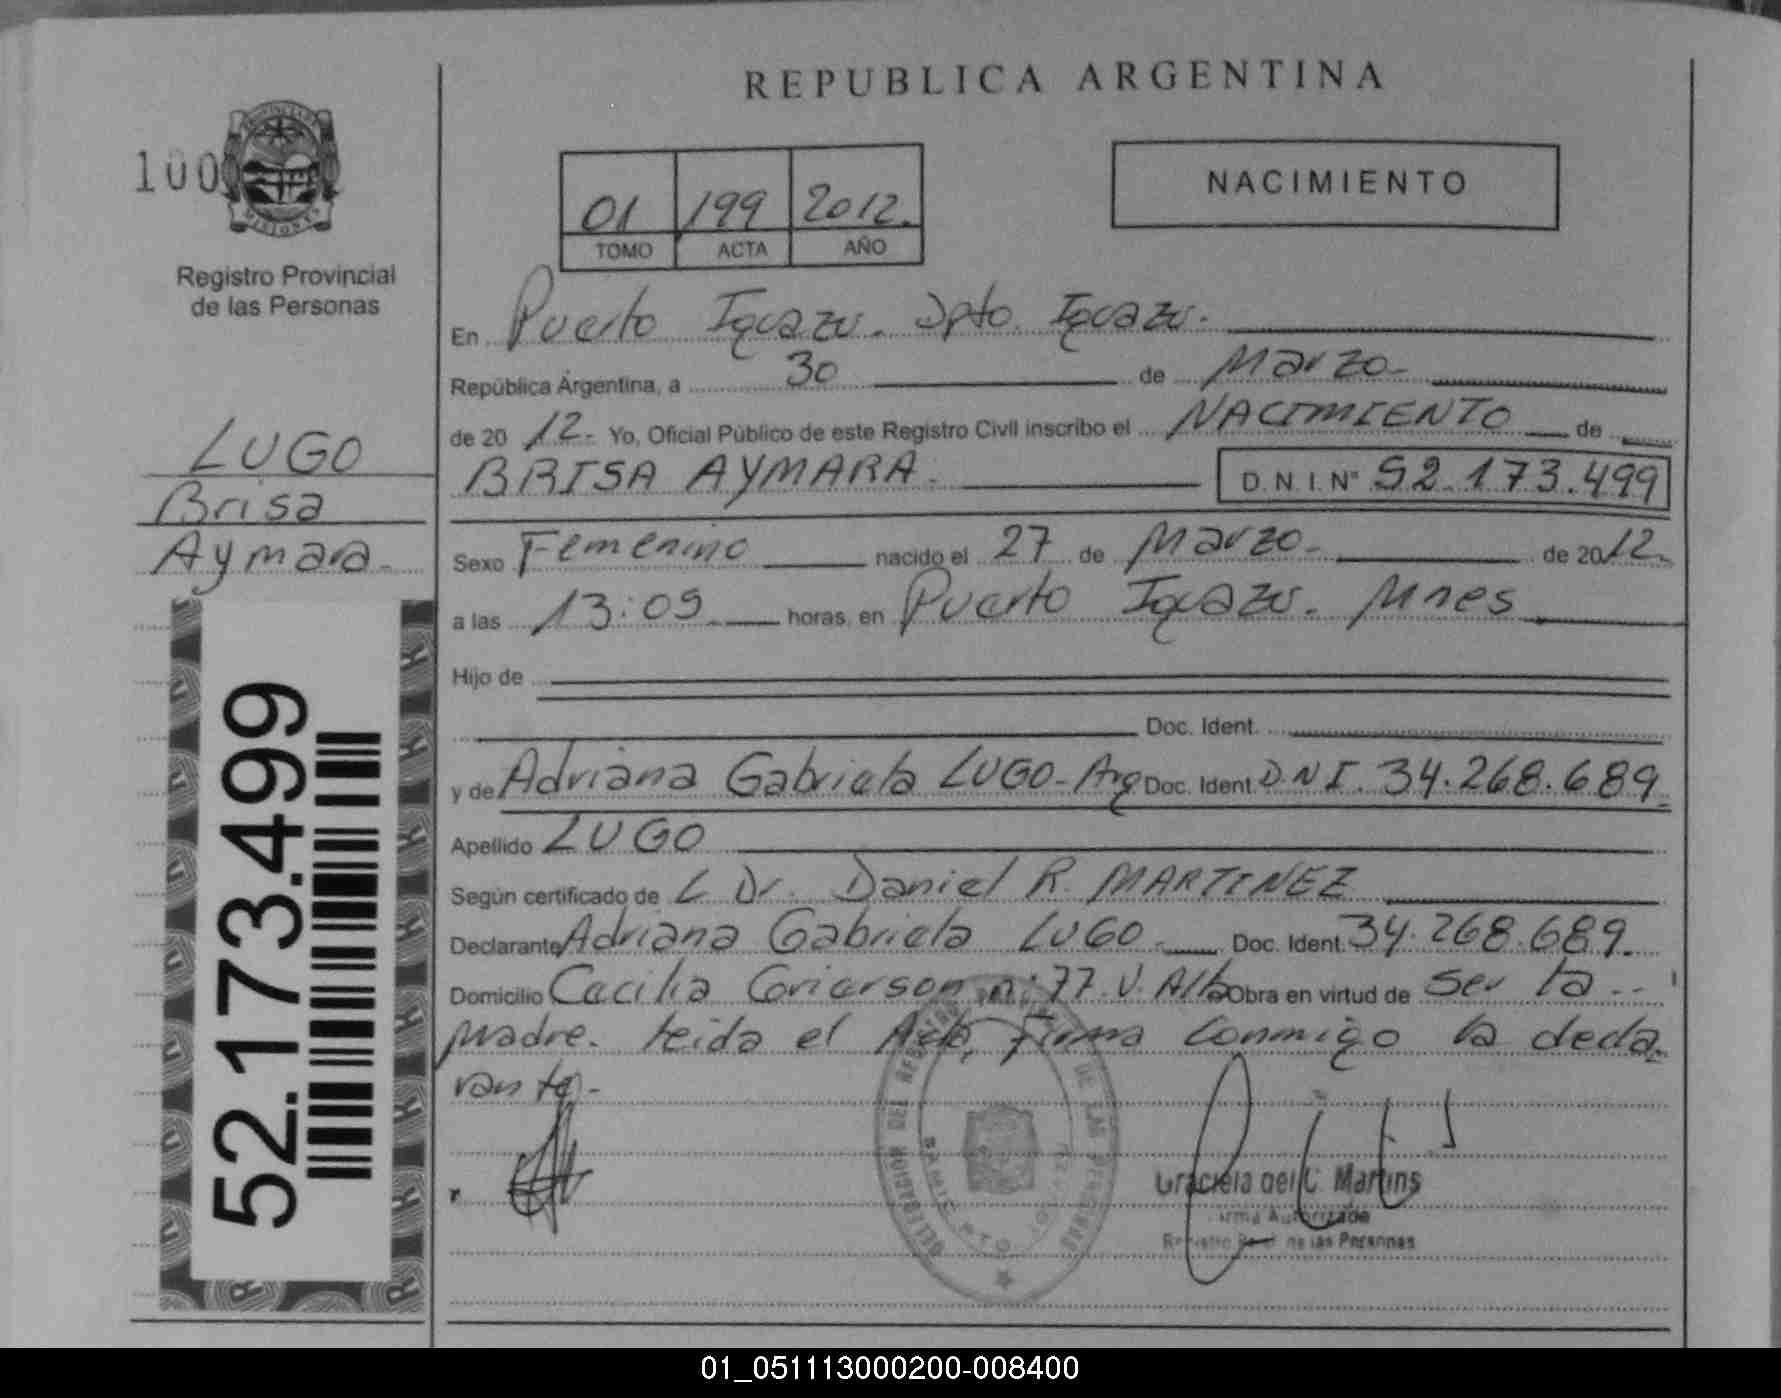 REPUBLICA ARGENTINA
100
PROVINCIA DE MISIONES
Registro Provincial
de las Personas
01 199 2012.
TOMO ACTA AÑO
NACIMIENTO
LUGO
Brisa
Aymara-
52.173.499
En Puerto Iguazu. Dpto. Iguazu.
República Argentina, a 30 de Marzo-
de 20 12- Yo, Oficial Público de este Registro Civil inscribo el NACIMIENTO de
BRISA AYMARA. D.N.I.Nº 52.173.499
Sexo Femenino nacido el 27 de Marzo- de 2012.
a las 13:09 horas, en Puerto Iguazu. Mnes
Hijo de
Doc. Ident.
y de Adriana Gabriela LUGO-Arg Doc. Ident. D.N.I. 34.268.689.
Apellido LUGO
Según certificado de L Dr. Daniel R. MARTINEZ
Declarante Adriana Gabriela LUGO. Doc. Ident. 34.268.689.
Domicilio Cecilia Grierson nº 77 V. Alba Obra en virtud de Ser la
madre. leida el Acta, Firma conmigo la decla
rante-
DELEGACION DEL REGISTRO DE LAS PERSONAS
Graciela del C. Martins
Firma Autorizada
Registro de las Personas
01_051113000200-008400